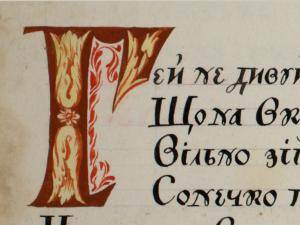 Гей не диву
Що на Вк
Вільно зій
Сонечко п